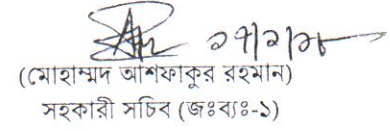 (মোহাম্মদ আশফাকুর রহমান)
সহকারী সচিব (জঃব্যঃ-১)